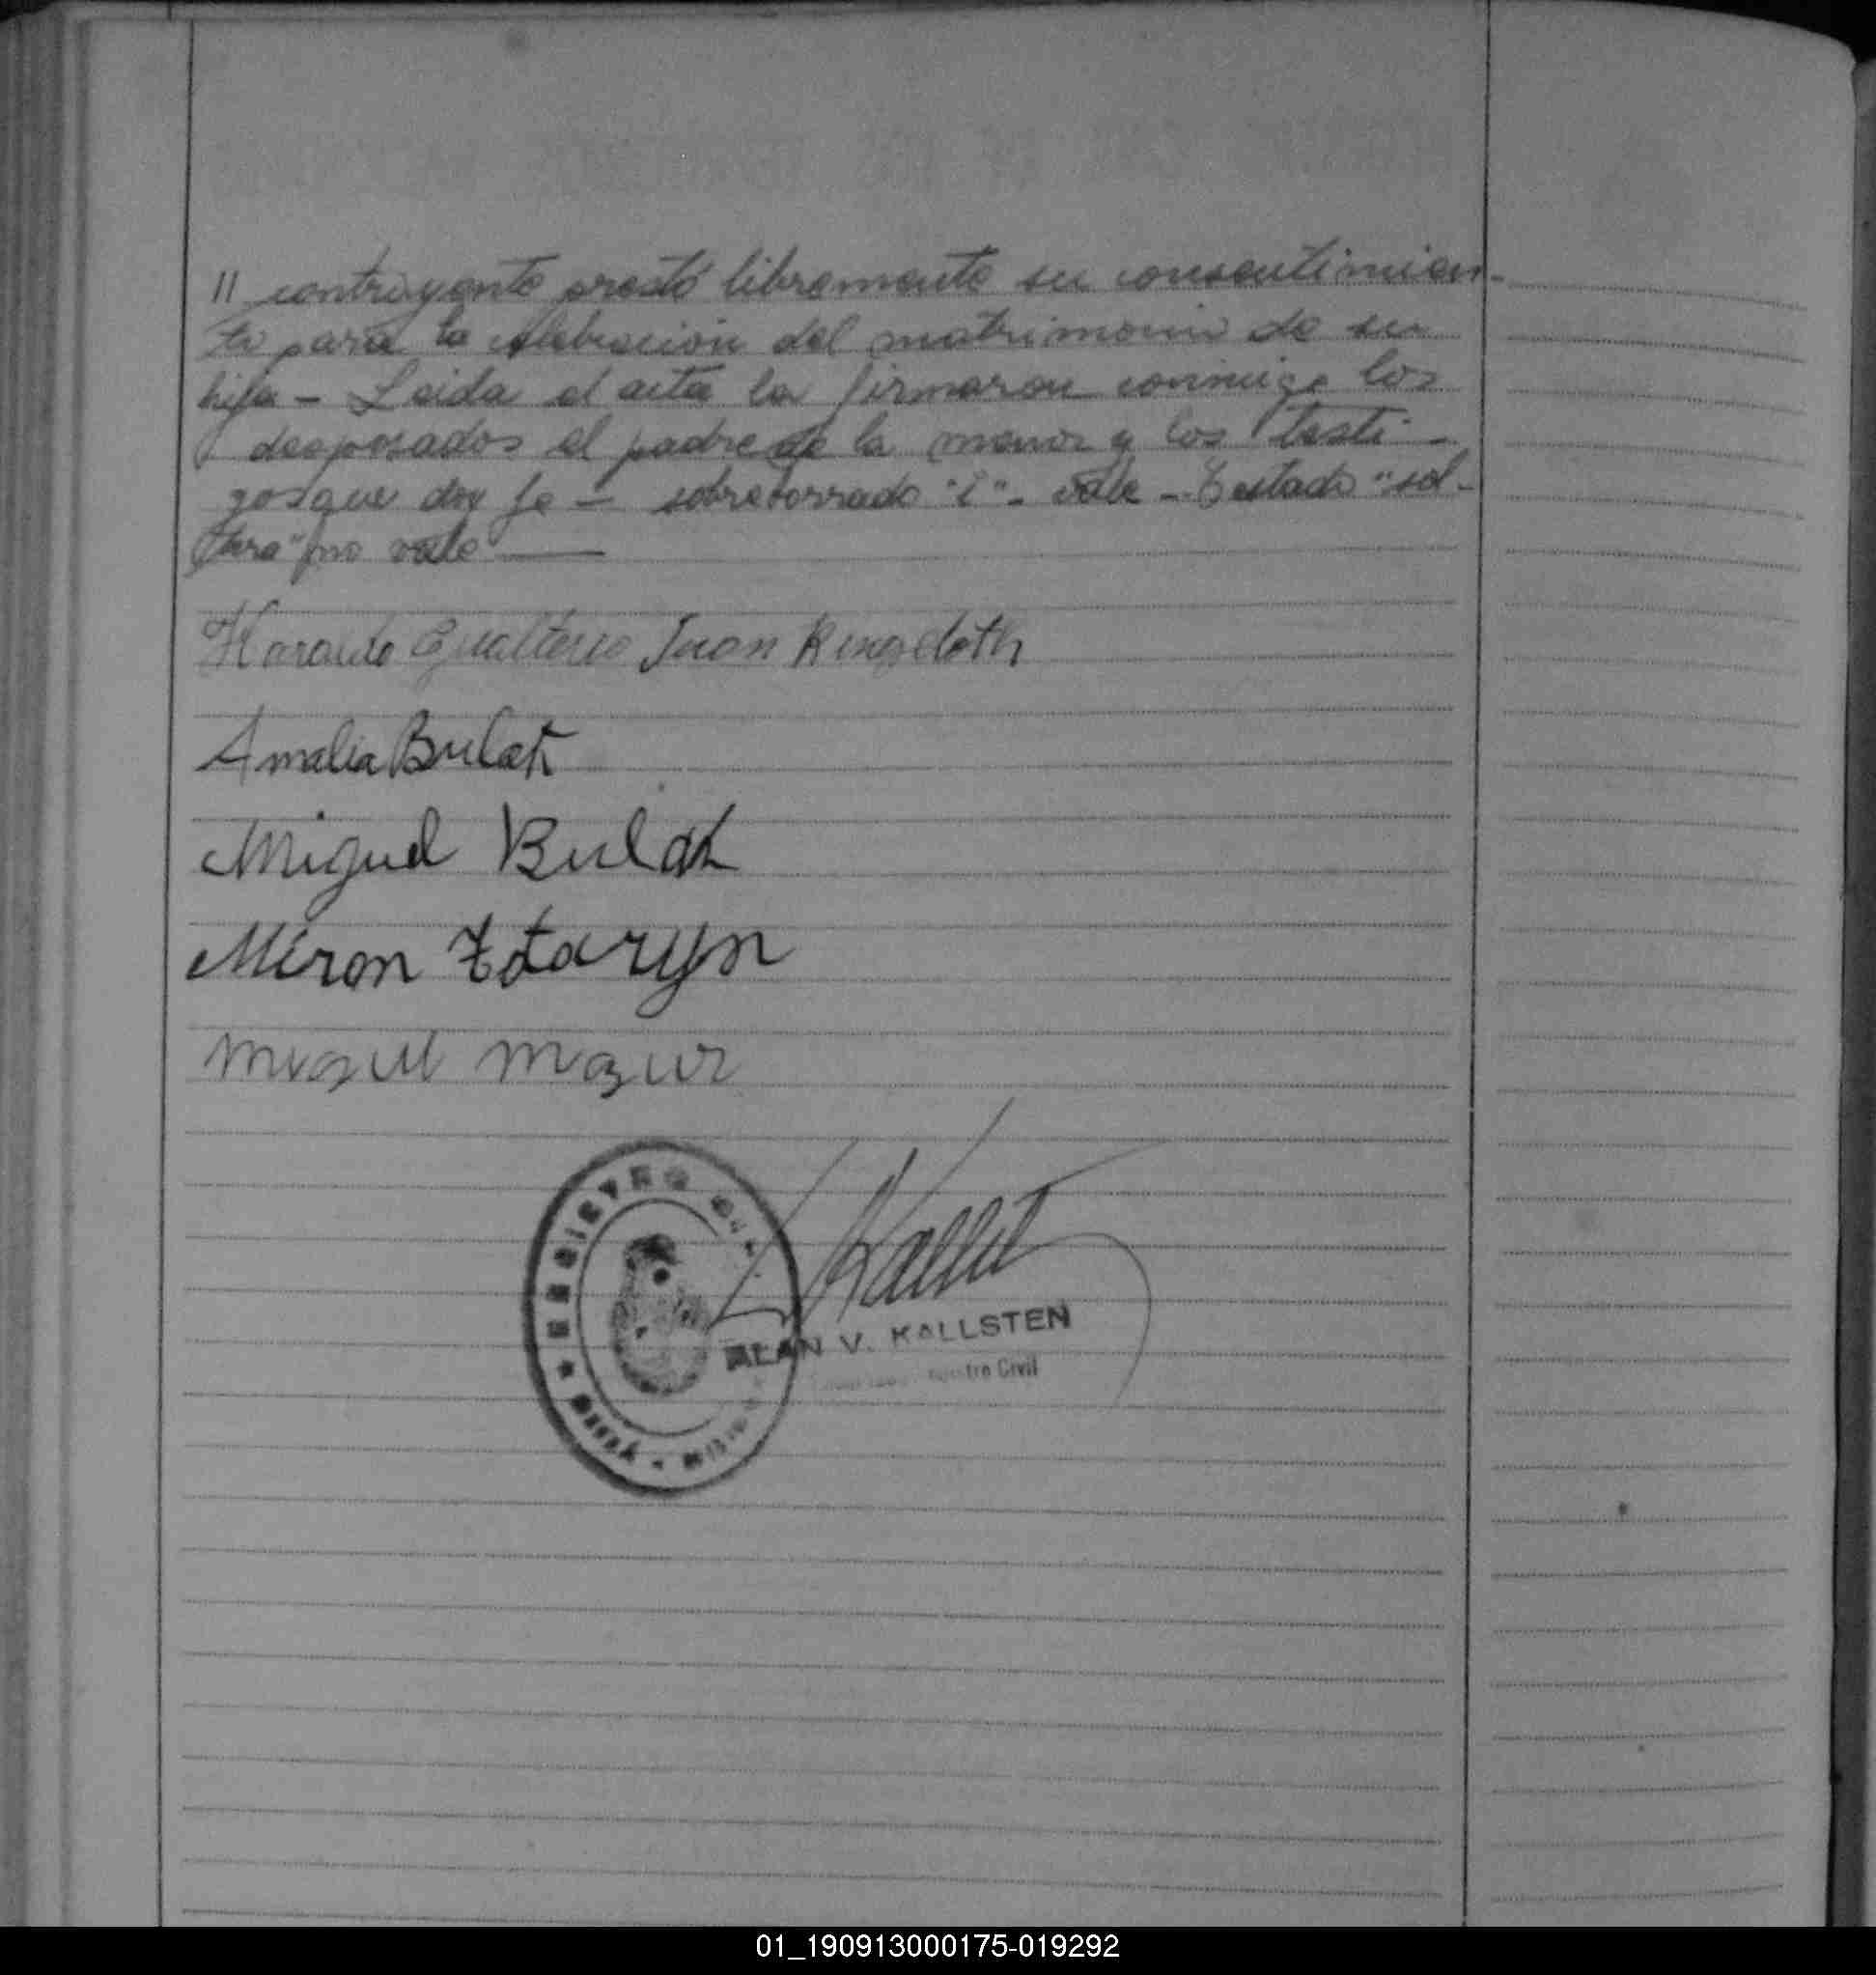 // contrayente prestó libremente su consentimien-
to para la celebración del matrimonio de su
hija - Leida el acta la firmaron conmigo los
desposados el padre de la menor y los testi-
gos que doy fe - sobreborrado "i" - vale - Testado "sol-
tera" no vale
Haroldo Gualterio Juan
Amalia Bulak
Miguel Bulak
Miron
Miguel Mazur
REGISTRO
ALAN V. KALLSTEN
Registro Civil
01_190913000175-019292